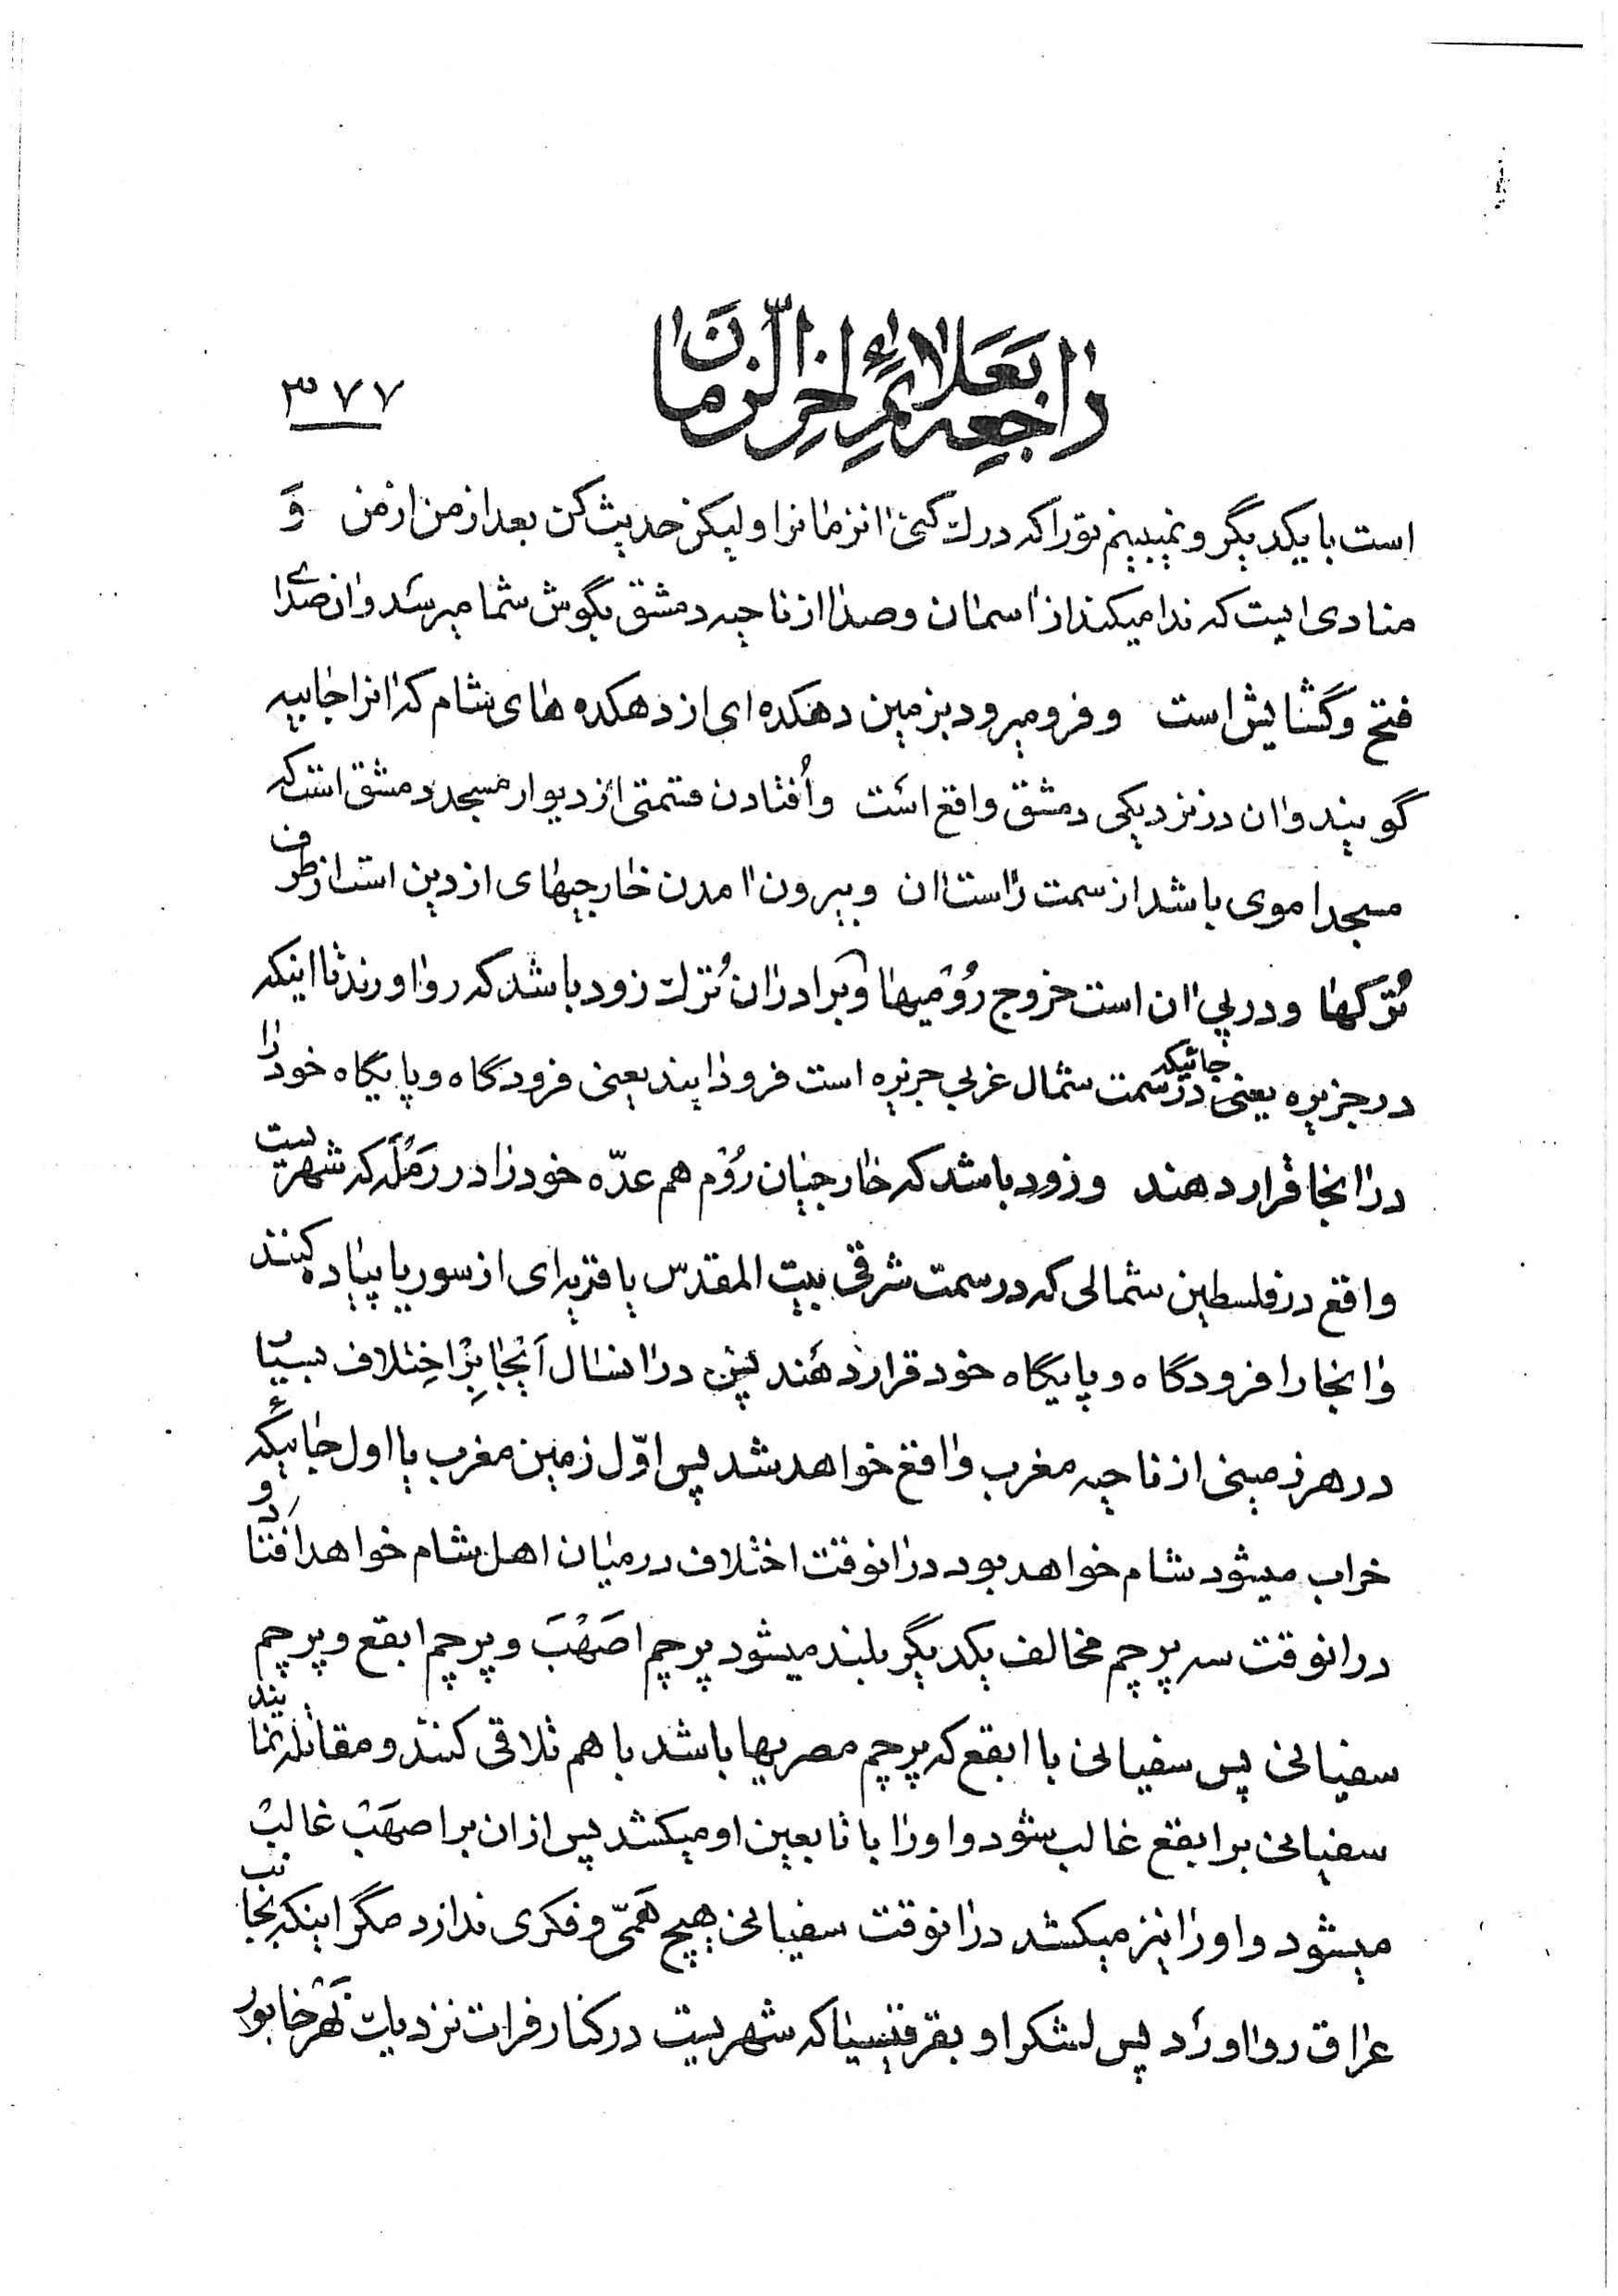 راجعه بعلائم اخر الزمان
۳۷۷
است با یکدیگر و نمیبینم تو را که درك کنی انزمانرا ولیکن حدیث کن بعد از من از من وَ
منادی ایست که ندا میکند از اسمان و صدا از ناحیه دمشق بگوش شما میرسد و ان صدای
فتح و گشایش است و فرو میرود بزمین دهکده ای از دهکده های شام که انرا جابیه
گویند و ان در نزدیکی دمشق واقع است و اُفتادن قسمتی از دیوار مسجد دمشق است که
مسجد اموی باشد از سمت راست ان و بیرون امدن خارجیهای از دین است از طرف
تُرکها و در پی ان است خروج رُومیها و برادران تُرك زود باشد که رو اورند تا اینکه
در جزیره یعنی جائیکه در سمت شمال غربی جزیره است فرود ایند یعنی فرودگاه و پایگاه خود را
در انجا قرار دهند و زود باشد که خارجیان رُوم هم عدّه خود را در رَمله که شهریست
واقع در فلسطین شمالی که در سمت شرقی بیت المقدس یا قریه ای از سوریا پیاده کنند
و انجا را فرودگاه و پایگاه خود قرار دهند پس در انسال اختلاف بسیار
در هر زمینی از ناحیه مغرب واقع خواهد شد پس اوّل زمین مغرب یا اول جائیکه
خراب میشود شام خواهد بود در انوقت اختلاف در میان اهل شام خواهد افتاد و
در انوقت سه پرچم مخالف یکدیگر بلند میشود پرچم اصَهْبَ و پرچم ابقع و پرچم
سفیانی پس سفیانی با ابقع که پرچم مصریها باشد با هم تلاقی کنند و مقاتله نمایند
سفیانی بر ابقع غالب شود و او را با تابعین او میکشد پس از ان بر اصهَب غالب
میشود و او را نیز میکشد در انوقت سفیانی هیچ هَمّی و فکری ندارد مگر اینکه بجانب
عراق رو اورد پس لشکر او بقرقیسیا که شهریست در کنار فرات نزدیك نَهْر خابور